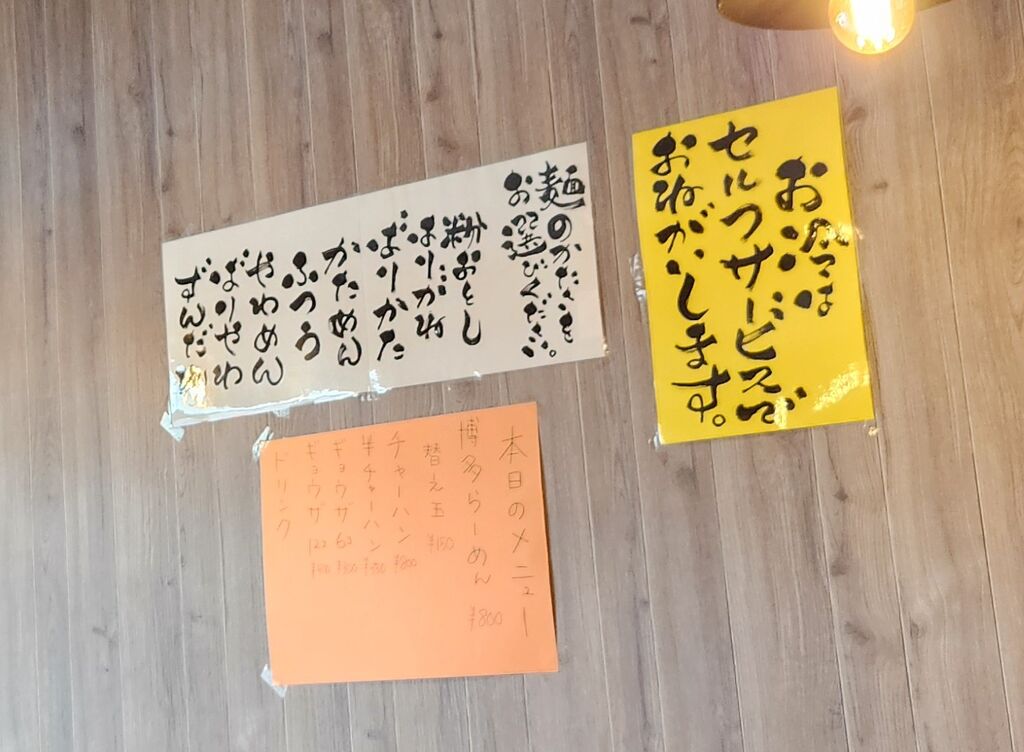 お冷は
セルフサービスで
おねがいします。
麺のかたさを
お選びください。
粉おとし
はりがね
ばりかた
かためん
ふつう
やわめん
ばりやわ
ずんだれ
本日のメニュー
博多らーめん ¥800
替え玉 ¥150
チャーハン ¥800
半チャーハン
ギョウザ 6コ
ギョウザ 12コ
ドリンク